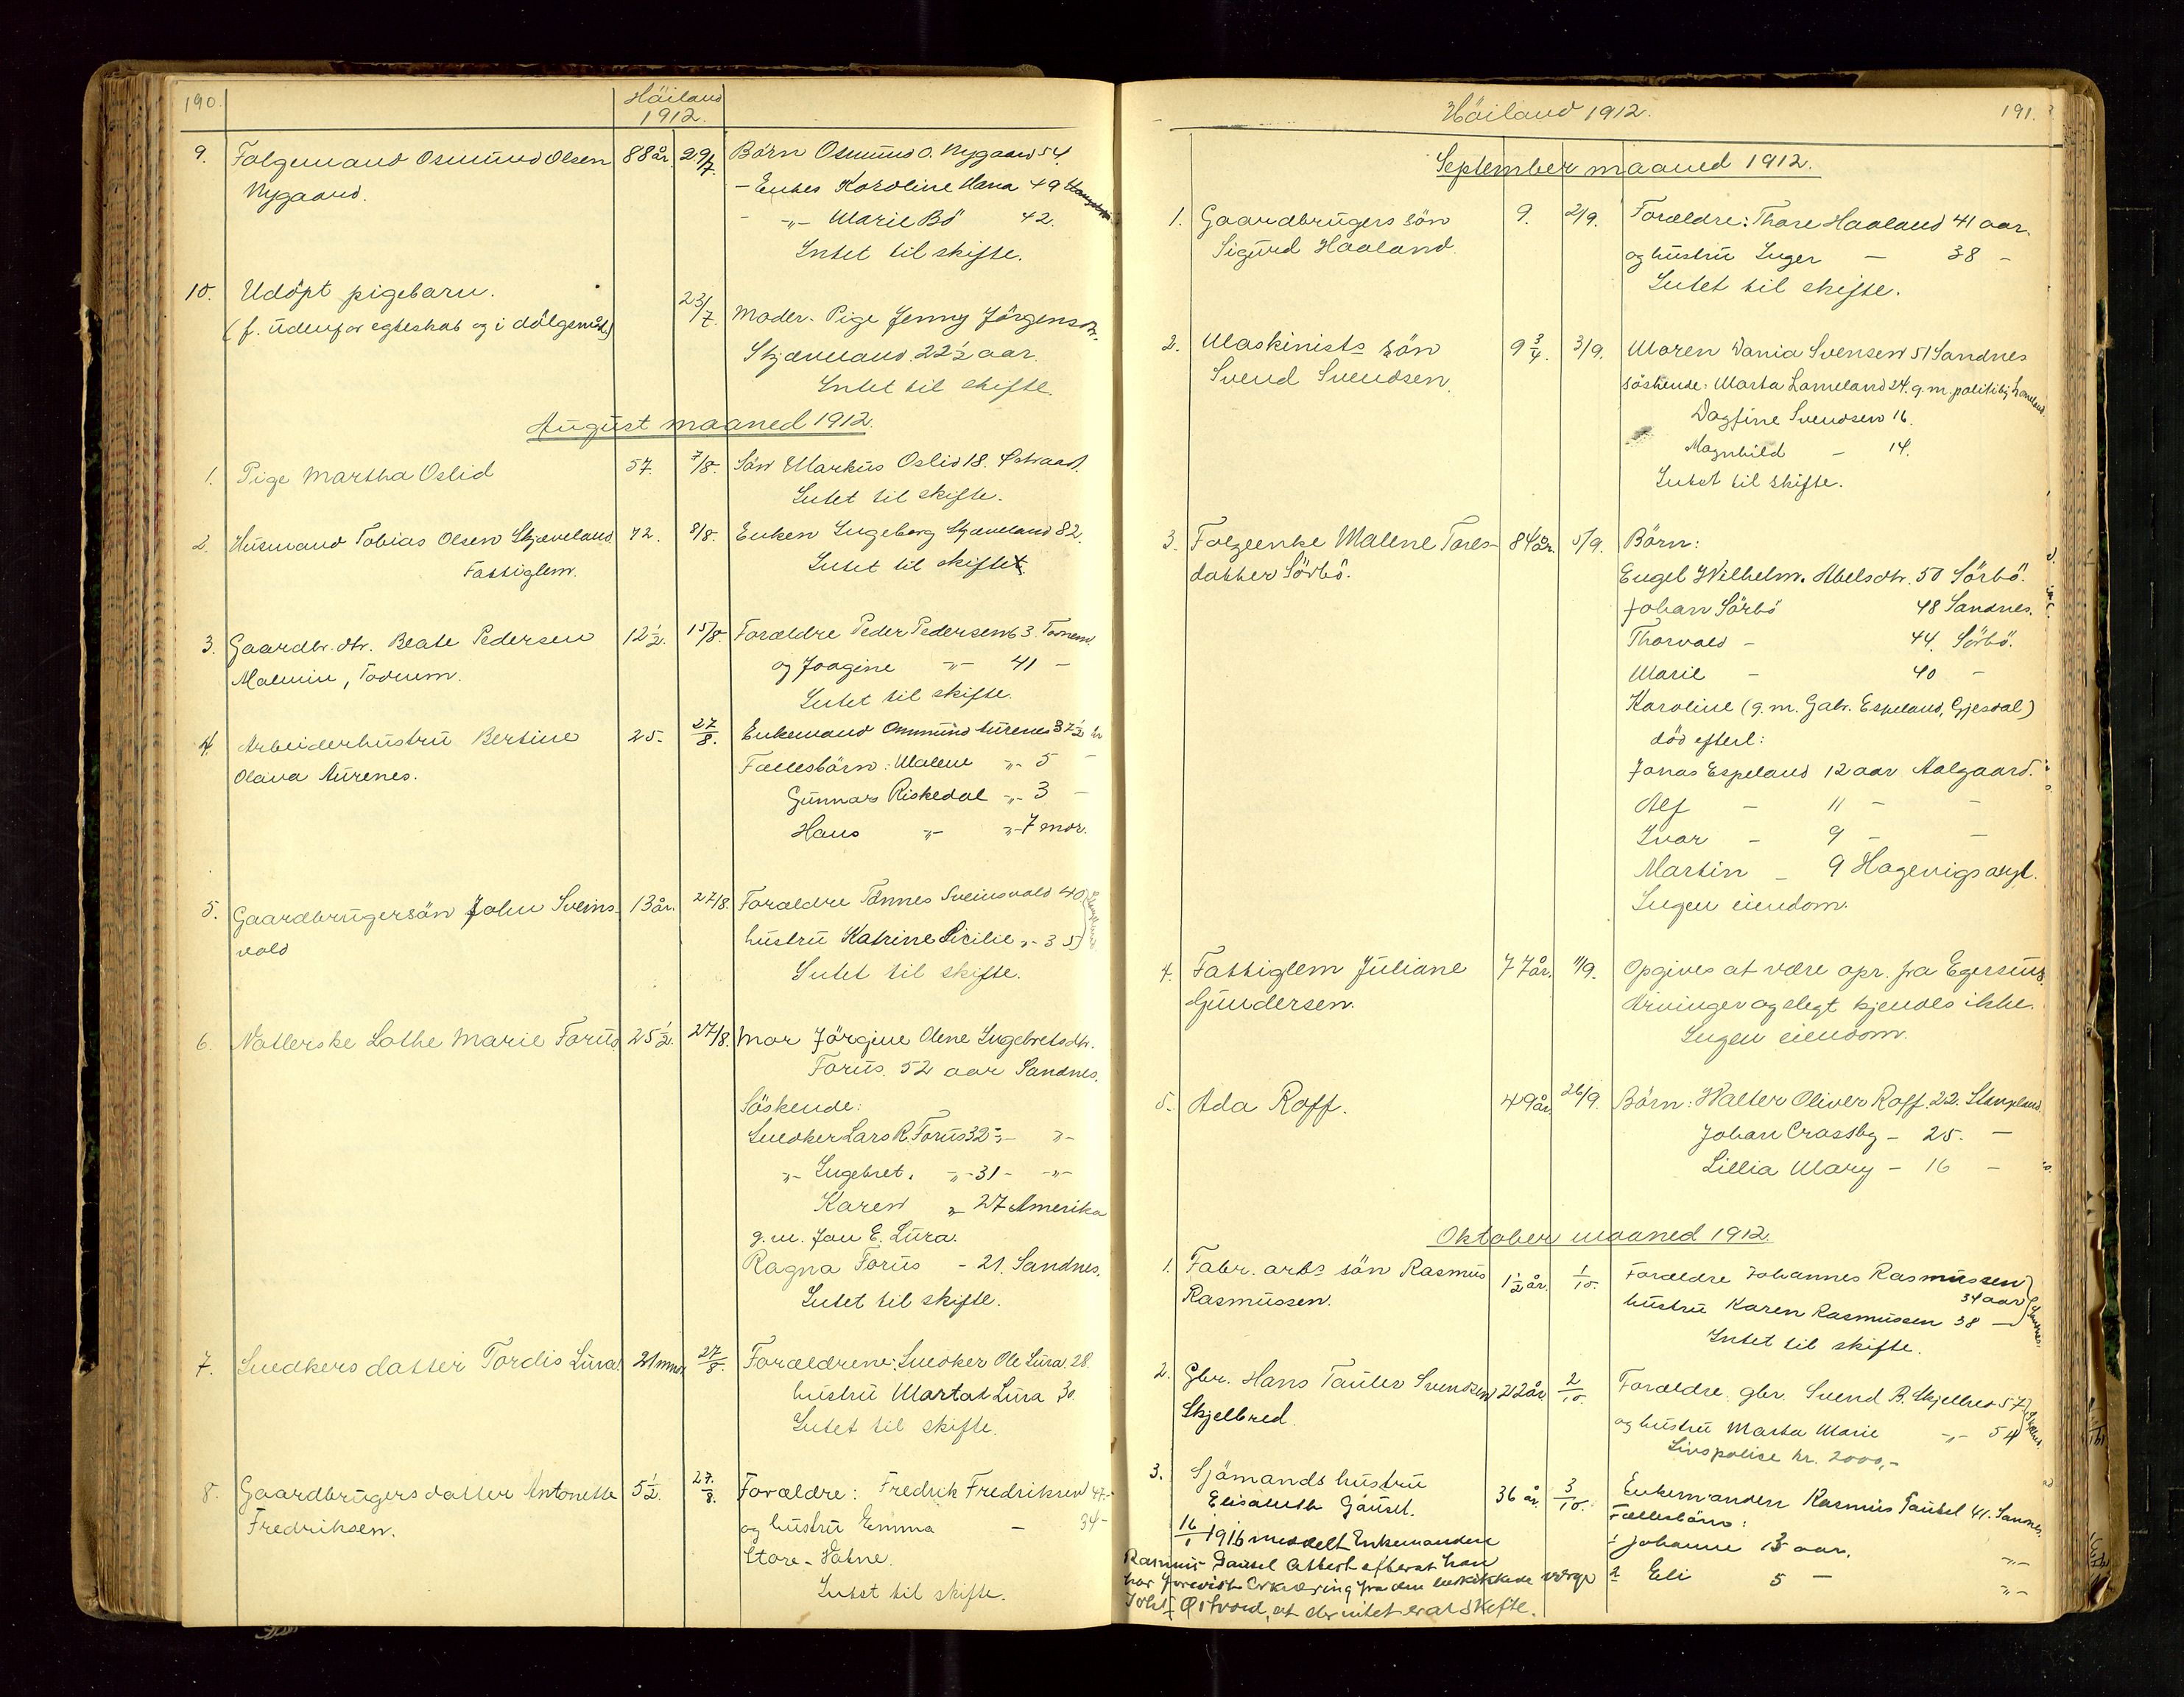 190.
Höiland
1912.
9. Folgemand Osmund Olsen 88 år. 29/7. Börn Osmund O. Nygaard 54.
Nygaard. - Enkes Karoline Hana 49
-„- Marie Bö 42.
Intet til skifte.
10. Udöpt pigebarn. 23/7. Moder. Pige Jenny Jörgensdtr.
(f. udenfor egteskab og i dölgsmål) Skjæveland 22½ aar.
Intet til skifte.
August maaned 1912.
1. Pige Martha Oslid 57. 7/8. Sön Markus Oslid 18.
Intet til skifte.
2. Husmand Tobias Olsen Skjæveland 72. 8/8. Enken Ingeborg Skjæveland 82.
Fattiglem. Intet til skifte.
3. Gaardbr. dtr. Beate Pedersen 12½. 15/8. Forældre Peder Pedersen 63.
Malmin, Foerum. og Joagine -„- 41 -
Intet til skifte.
4. Arbeiderhustru Bertine 25. 27/8. Enkemand Ommund Aurenes 37½
Olava Aurenes. Fællesbörn: Malene -„- 5 -
Gunnar Riskedal -„- 3 -
Hans -„- -„- 7 mdr.
5. Gaardbrugersön John Sveins- 13 år. 27/8. Forældre Tönnes Sveinsvold 40
vold hustru Katrine Cicilie -„- 35
Intet til skifte.
6. Nätlerske Lothe Marie Forus 25½. 27/8. Mor Jörgine Olene Ingebretsdtr.
Forus. 52 aar Sandnes.
Söskende:
Snedker Lars R. Forus 32 -„- -„-
-„- Ingebret. -„- 31 - -„-
Karen -„- 27 Amerika
g.m. Jan E. Lura.
Ragna Forus - 21. Sandnes.
Intet til skifte.
7. Snedkers datter Tordis Lura 21 mndr. 27/8. Forældrene: Snedker Ole Lura. 28.
hustru Marta Lura 30.
Intet til skifte.
8. Gaardbrugers datter Antonette 5½. 27/8. Forældre: Fredrik Fredriksen 47-
Fredriksen. og hustru Emma - 34-
Store-Vatne.
Intet til skifte.
Höiland 1912. 191.
September maaned 1912.
1. Gaardbrugers sön 9. 2/9. Forældre: Thore Haaland 41 aar.
Sigurd Haaland og hustru Inger - 38 -
Intet til skifte.
2. Maskinists sön 9¾. 3/9. Moren Dania Svensen 51 Sandnes
Svend Svendsen söskende: Marta Lomeland 24. g.m. politibtj. Lomeland.
Dagfine Svendsen 16.
Magnhild - 14.
Intet til skifte.
3. Folgeenke Malene Tores- 84 år. 5/9. Börn:
datter Sörbö. Engel Wilhelm. Abelsdtr. 50 Sörbö.
Johan Sörbö 48 Sandnes.
Thorvald - 44. Sörbö.
Marie - 40 -
Karoline (g.m. Gabr. Espeland, Gjesdal)
död efterl:
Jonas Espeland 12 aar Aalgaard.
Alf - 11 - -
Ivar - 9 - -
Martin - 9 Hagevigs asyl.
Ingen eiendom.
4. Fattiglem Juliane 77 år. 11/9. Opgives at være opr. fra Egersund.
Gundersen. Arvinger og slegt kjendes ikke.
Ingen eiendom.
5. Ada Roff. 49 år 26/9. Börn: Walter Oliver Roff. 22. Stangeland.
Johan Crassby - 25. -
Lillia Mary - 16 -
Oktober maaned 1912.
1. Fabr. arbs sön Rasmus 1½ år. 1/10. Forældre Johannes Rasmussen
34 aar
Rasmussen. hustru Karen Rasmussen 38 - Sandnes.
Intet til skifte.
2. Gbr. Hans Tauler Svendsen 22 år. 2/10. Forældre. gbr. Svend B. Skjelbred 57
Skjelbred. og hustru Marta Marie -„- 54
Livspolise kr. 2000,-
3. Sjömands hustru 36 år. 3/10. Enkemanden Rasmus Gausel 41. Sandnes.
Elisabeth Gausel. Fællesbörn:
16/1 1916 meddelt Enkemanden 1 Johanne 13 aar. -„-
Rasmus Gausel Attest efterat han
har forevist Erklæring fra den beskikkede værge 2 Eli 5 - -„-
Johs Østvold, at der intet er at skifte.